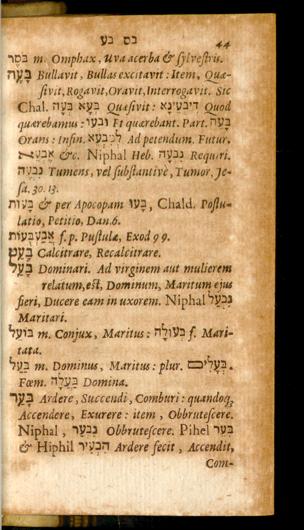 בס בע 44
בֹּסֶר m. Omphax, Uva acerba & sylvestris.
בָּעָה Bullavit, Bullas excitavit: Item, Quæ-
sivit, Rogavit, Oravit, Interrogavit. Sic
Chal. בְּעָא בְּעָה Quæsivit: Quod
quærebamus: וּבְעוֹ Et quærebant. Part. בָּעֵה
Orans: Infin. לְמִבְעֵא Ad petendum. Futur.
&c. Niphal Heb. נִבְעָה Requiri.
נִבְעֶה Tumens, vel substantivè, Tumor. Je-
sa. 30. 13.
בָּעוּת & per Apocopam בָּעוּ, Chald. Postu-
latio, Petitio, Dan. 6.
אֲבַעְבֻּעוֹת f. p. Pustulæ, Exod 9 9.
בָּעַט Calcitrare, Recalcitrare.
בָּעַל Dominari. Ad virginem aut mulierem
relatum, est, Dominum, Maritum ejus
fieri, Ducere eam in uxorem. Niphal נִבְעַל
Maritari.
בּוֹעֵל m. Conjux, Maritus: בְּעוּלָה f. Mari-
tata.
בַּעַל m. Dominus, Maritus: plur. בְּעָלִים.
Fœm. בַּעֲלָה Domina.
בָּעַר Ardere, Succendi, Comburi: quandoq;
Accendere, Exurere: item, Obbrutescere.
Niphal, נִבְעַר Obbrutescere. Pihel בִּעֵר
& Hiphil הִבְעִיר Ardere fecit, Accendit,
Com-